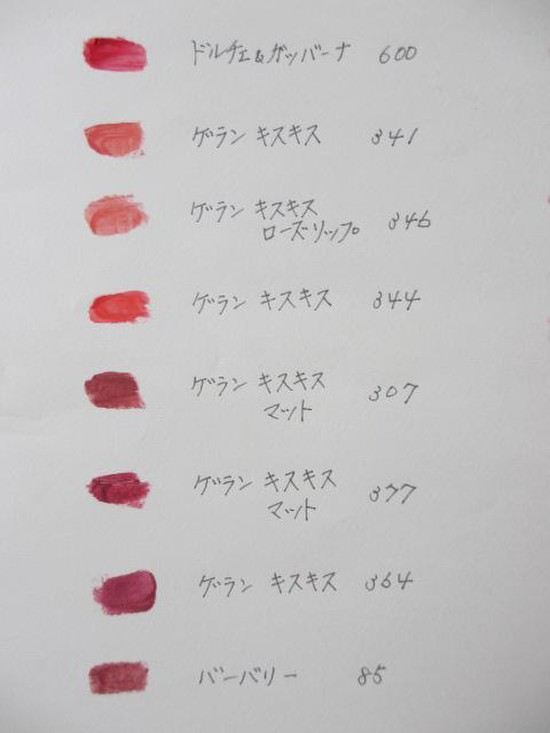 ドルチェ&ガッバーナ 600
ゲラン キスキス 341
ゲラン キスキス
ローズリップ 346
ゲラン キスキス 344
ゲラン キスキス
マット 307
ゲラン キスキス
マット 377
ゲラン キスキス 364
バーバリー 85